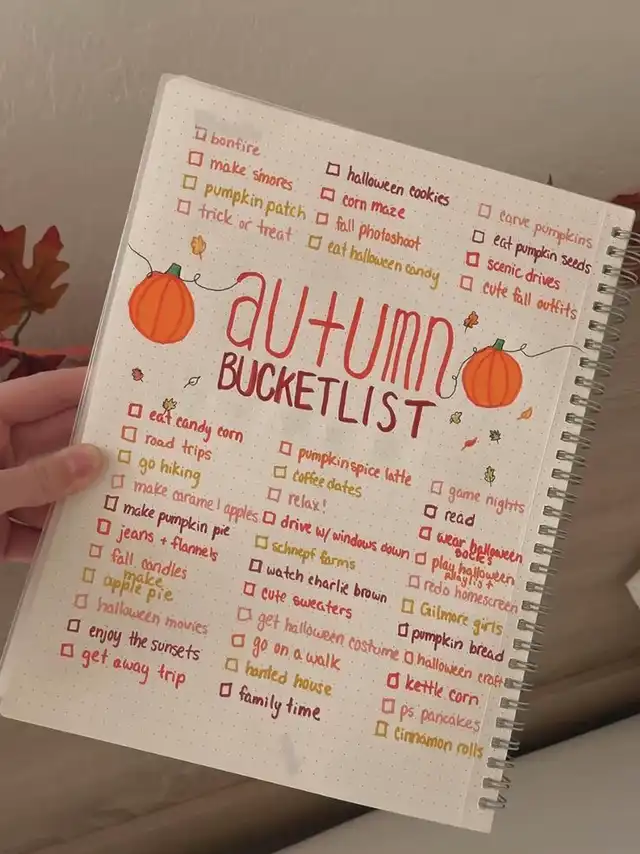 bonfire
make s'mores
pumpkin patch
trick or treat
halloween cookies
corn maze
fall photoshoot
eat halloween candy
carve pumpkins
eat pumpkin seeds
scenic drives
cute fall outfits
autumn
BUCKETLIST
eat candy corn
road trips
go hiking
make caramel apples
make pumpkin pie
jeans + flannels
fall candles
make
apple pie
halloween movies
enjoy the sunsets
get away trip
pumpkin spice latte
coffee dates
relax!
drive w/ windows down
schnepf farms
watch charlie brown
cute sweaters
get halloween costume
go on a walk
hanted house
family time
game nights
read
wear halloween
socks
play halloween
playlist
redo homescreen
Gilmore girls
pumpkin bread
halloween craft
kettle corn
ps pancakes
cinnamon rolls